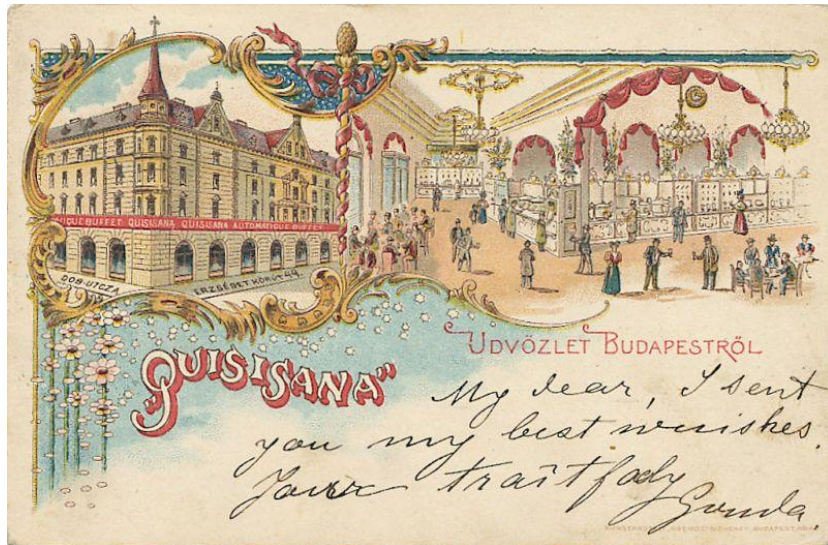 UIQUE BUFFET QUISISANA QUISISANA AUTOMATIQUE BUFFET
DOB-UTCZA
ERZSÉBET KÖRÚT 44.
ÜDVÖZLET BUDAPESTRŐL
„QUISISANA”
My dear, I sent
you my best wuishes.
Your traitfody
Gonda.